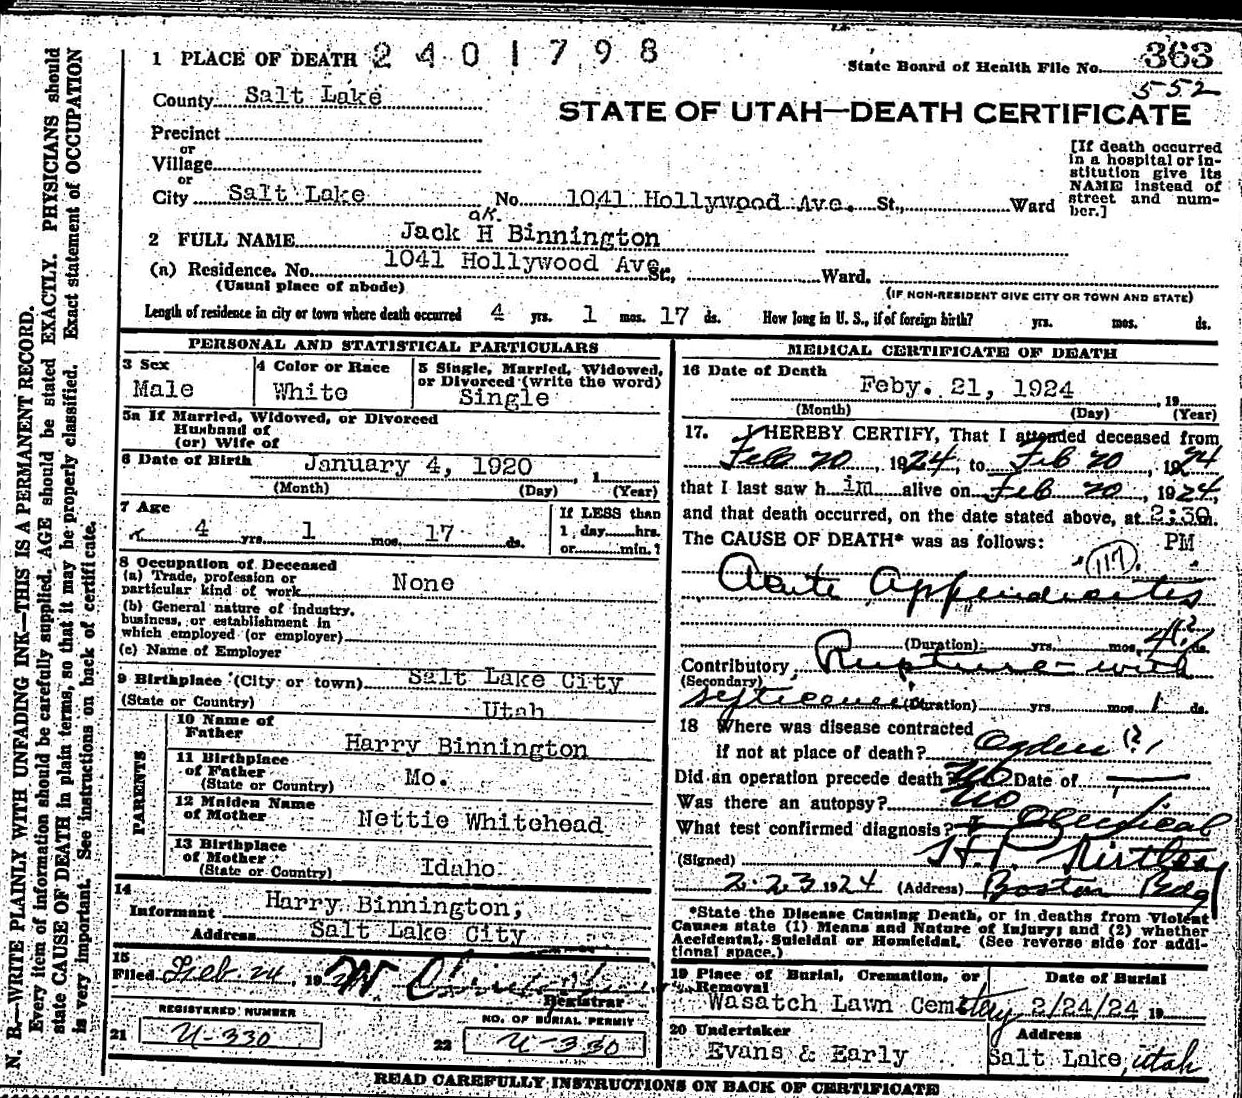 1 PLACE OF DEATH 2401798
State Board of Health File No. 363
552
County Salt Lake
STATE OF UTAH—DEATH CERTIFICATE
Precinct
or
Village
or
City Salt Lake No. 1041 Hollywood Ave. St., Ward
[If death occurred in a hospital or institution give its NAME instead of street and number.]
ok.
2 FULL NAME Jack H Binnington
(a) Residence. No. 1041 Hollywood Ave St., Ward.
(Usual place of abode)
(IF NON-RESIDENT GIVE CITY OR TOWN AND STATE)
Length of residence in city or town where death occurred 4 yrs. 1 mos. 17 ds. How long in U. S., if of foreign birth? yrs. mos. ds.
PERSONAL AND STATISTICAL PARTICULARS
3 Sex
Male
4 Color or Race
White
5 Single, Married, Widowed,
or Divorced (write the word)
Single
5a If Married, Widowed, or Divorced
Husband of
(or) Wife of
6 Date of Birth January 4, 1920 , 1
(Month) (Day) (Year)
7 Age
4 yrs. 1 mos. 17 ds.
If LESS than
1 day hrs.
or min.?
8 Occupation of Deceased
(a) Trade, profession or
particular kind of work None
(b) General nature of industry,
business, or establishment in
which employed (or employer)
(c) Name of Employer
9 Birthplace (City or town) Salt Lake City
(State or Country) Utah
PARENTS
10 Name of
Father Harry Binnington
11 Birthplace
of Father Mo.
(State or Country)
12 Maiden Name
of Mother Nettie Whitehead
13 Birthplace
of Mother
(State or Country) Idaho
14
Informant Harry Binnington,
Address Salt Lake City
15
Filed Feb. 24, 192
Registrar
REGISTERED NUMBER
21 U-330
NO. OF BURIAL PERMIT
22 U-330
MEDICAL CERTIFICATE OF DEATH
16 Date of Death
Feby. 21, 1924 , 19
(Month) (Day) (Year)
17. I HEREBY CERTIFY, That I attended deceased from
Feb 20, 1924, to Feb 20, 1924
that I last saw him alive on Feb 20, 1924,
and that death occurred, on the date stated above, at 2:30 m.
PM
The CAUSE OF DEATH* was as follows:
117.
Acute Appendicitis
(Duration) yrs. mos. 4(?) ds.
Contributory Rupture - with
(Secondary)
septicemia (Duration) yrs. mos. 1 ds.
18 Where was disease contracted
if not at place of death? Ogden (?)
Did an operation precede death? No Date of
Was there an autopsy? No
What test confirmed diagnosis? Clinical
(Signed) H.P. Kirtley
2-23 1924 (Address) Boston Bldg
*State the Disease Causing Death, or in deaths from Violent
Causes state (1) Means and Nature of Injury; and (2) whether
Accidental, Suicidal or Homicidal. (See reverse side for addi-
tional space.)
19 Place of Burial, Cremation, or
Removal
Wasatch Lawn Cemetery
Date of Burial
2/24/24 19
20 Undertaker
Evans & Early
Address
Salt Lake, Utah
READ CAREFULLY INSTRUCTIONS ON BACK OF CERTIFICATE
N. B.—WRITE PLAINLY WITH UNFADING INK—THIS IS A PERMANENT RECORD.
Every item of information should be carefully supplied. AGE should be stated EXACTLY. PHYSICIANS should
state CAUSE OF DEATH in plain terms, so that it may be properly classified. Exact statement of OCCUPATION
is very important. See instructions on back of certificate.